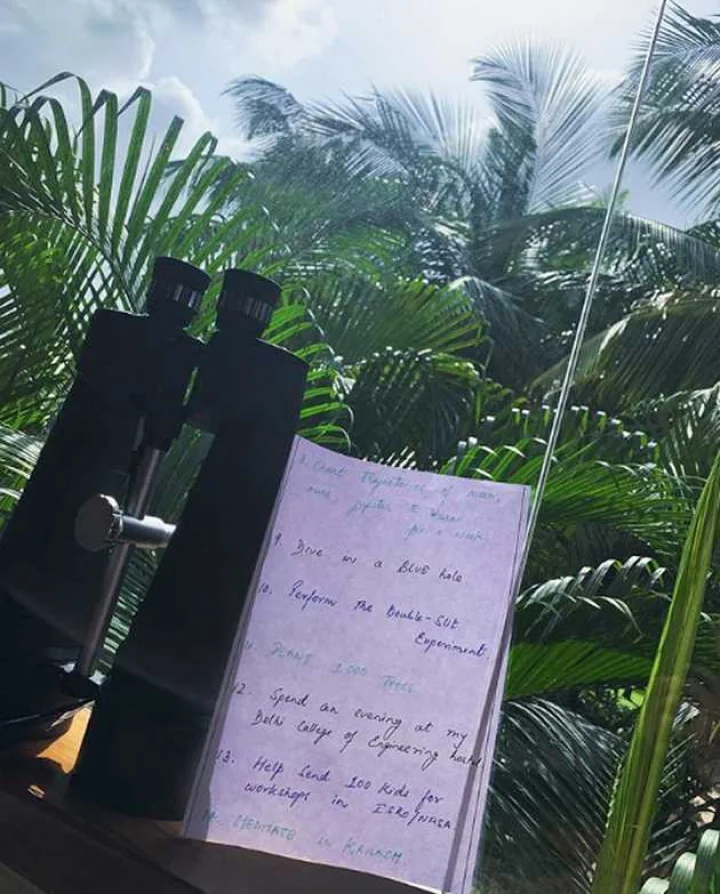 8. Chart trajectories of moon,
mars, jupiter & Saturn
for a week.
9. Dive in a BLUE hole
10. Perform the Double-Slit
Experiment.
11. PLANT 1000 Trees
12. Spend an evening at my
Delhi College of Engineering hostel
13. Help Send 100 Kids for
workshops in ISRO/NASA.
14. MEDITATE in KAILASH.